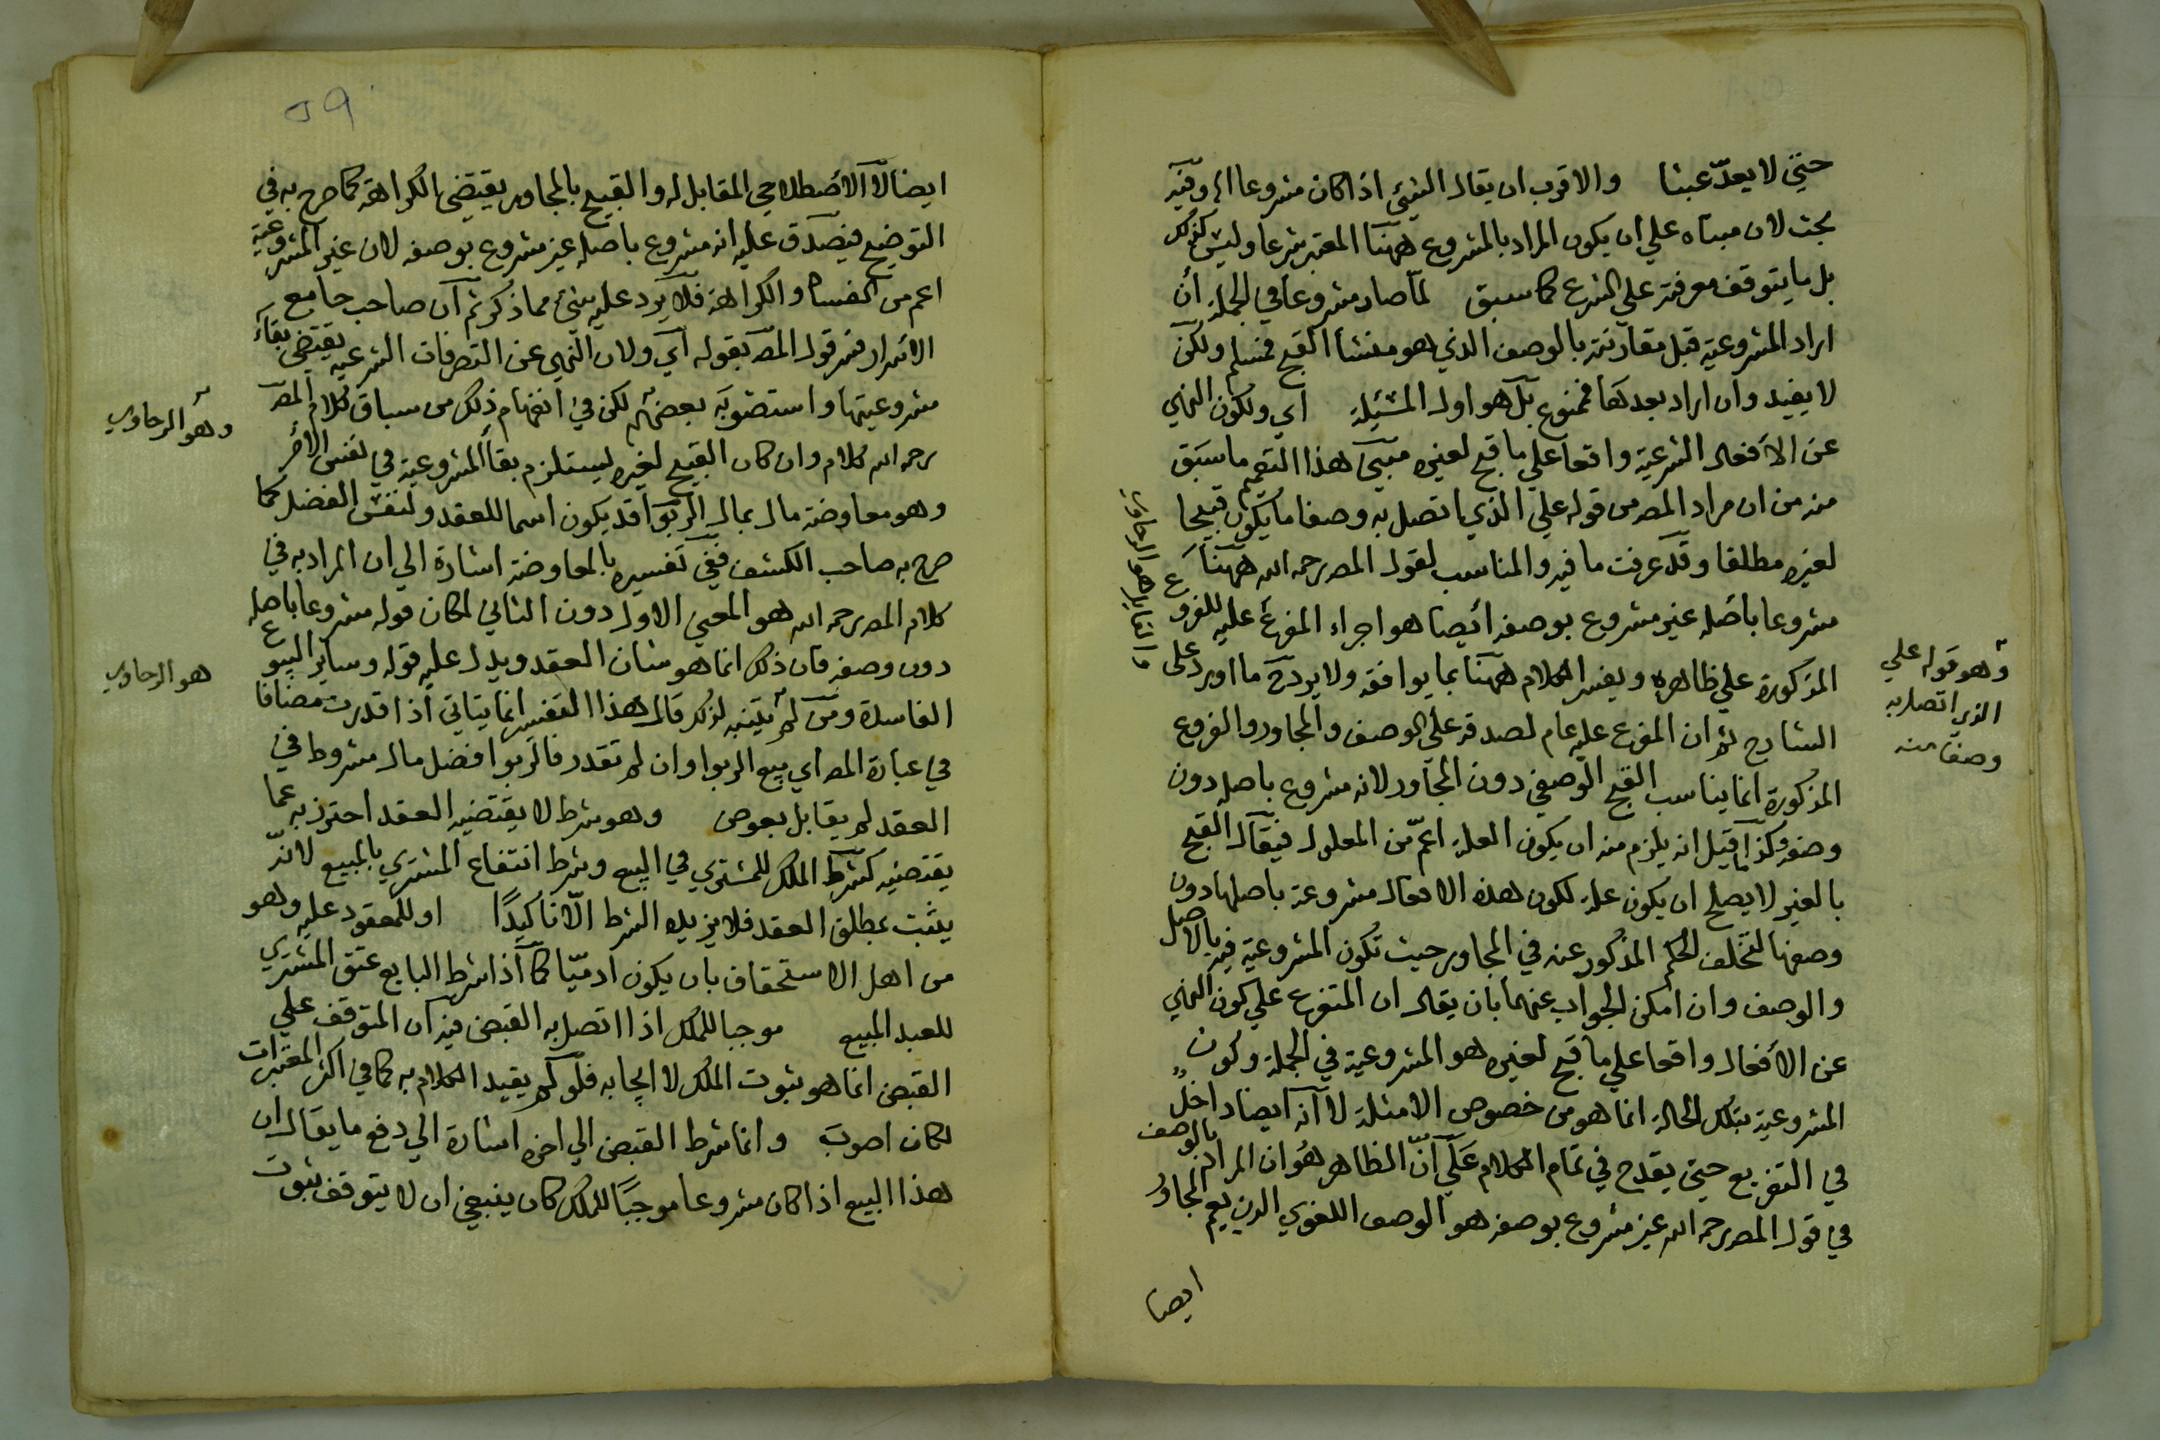 حتى لا يعدّ عبثا والاقرب ان يقال الشئ اذا كان مشروعا الخ وفيه
بحث لان مبناه علي ان يكون المراد بالمشروع ههنا المعتبر شرعا وليس كذلك
بل ما يتوقف معرفته علي الشرع كما سبق لما صار مشروعا في الجملة ان
اراد المشروعية قبل مقارنته بالوصف الذي هو منشأ القبح فمسلم ولكن
لا يفيد وان اراد بعدها فممنوع بل هو اول المسئلة اي ولكون النهي
عن الافعال الشرعية واقعا علي ما قبح لغيره مبنى هذا التعميم ما سبق
منه من ان مراد المصـ من قوله علي الذي اتصل به وصفا ما يكون قبيحا
لغيره مطلقا وقد عرفت ما فيه والمناسب لقول المصـ رحمه الله ههنا
مشروعا باصله غير مشروع بوصفه ايضا هو اجراء المفرع عليه للفروع
المذكورة علي ظاهره ويفسر الكلام ههنا بما يوافقه ولا يرد ح ما اورد على
الشارح ثم ان المفرع عليه عام لصدقه علي الوصف والمجاور والفروع
المذكورة انما يناسب القبح الوصفي دون المجاور لانه مشروع باصله دون
وصفه وكذا ما قيل انه يلزم منه ان يكون العلة اعمّ من المعلول فيقال القبح
بالغير لا يصلح ان يكون علة لكون هذه الافعال مشروعة باصلها دون
وصفها لتخلف الحكم المذكور عنه في المجاور حيث تكون المشروعية فيه بالاصل
والوصف وان امكن الجواب عنهما بان يقال ان المتفرع علي كون النهي
عن الافعال واقعا علي ما قبح لغيره هو المشروعية في الجملة وكون
المشروعية بتلك الحالة انما هو من خصوص الامثلة لا انه ايضا داخل
في التفريع حتى يقدح في تمام الكلام علي انّ الظاهر هو ان المراد بالوصف
في قول المصـ رحمه الله غير مشروع بوصفه هو الوصف اللغوي الذي يعم المجاور
ايضا
وهو قوله علي
الذي اتصل به
وصفا منه
والقايل هو الرهاوي
٥٩
ايضا لا الاصطلاحي المقابل له والقبيح بالمجاور يقتضي الكراهة كما صرح به في
التوضيح فيصدق عليه انه مشروع باصله غير مشروع بوصفه لان غير المشروعية
اعم من الفساد والكراهة فلا يرد عليه شئ مما ذكر ثم ان صاحب جامع
الاسرار فسر قول المصـ بقوله اي ولان النهي عن التصرفات الشرعية يقتضي بقاء
مشروعيتها واستصوبه بعضهم لكن في انفهام ذلك من سباق كلام المصـ
رحمه الله كلام وان كان القبيح لغيره يستلزم بقا المشروعية في نفس الامر
وهو معاوضة مال بمال الربوا قد يكون اسما للعقد ولنفس الفضل كما
صرح به صاحب الكشف ففي تفسيره بالمعاوضة اشارة الي ان المراد به في
كلام المصـ رحمه الله هو المعنى الاول دون الثاني لمكان قوله مشروعا باصله
دون وصفه فان ذلك انما هو شان العقد ويدل عليه قوله وساير البيوع
الفاسدة ومن لم يتنبه لذلك قال هذا التفسير انما يتاتي اذا قدرت مضافا
في عبارة المصـ اي بيع الربوا وان لم تقدر فالربوا فضل مال مشروط في
العقد لم يقابل بعوض وهو شرط لا يقتضيه العقد احترز به عما
يقتضيه كشرط الملك للمشتري في البيع وشرط انتفاع المشتري بالمبيع لانه
يثبت بمطلق العقد فلا يزيله الشرط الّا تاكيدًا او للمعقود عليه وهو
من اهل الاستحقاق بان يكون ادميّا كما اذا شرط البايع عتق المشتري
للعبد المبيع موجبا للملك اذا اتصل به القبض فيه ان المتوقف علي
القبض انما هو ثبوت الملك لا ايجابه فلو لم يقيد الكلام به كما في اكثر المعتبرات
لكان اصوب وانما شرط القبض الي اخره اشارة الي دفع ما يقال ان
هذا البيع اذا كان مشروعا موجبًا للملك كان ينبغي ان لا يتوقف ثبوت
وهو الرهاوي
هو الرهاوي